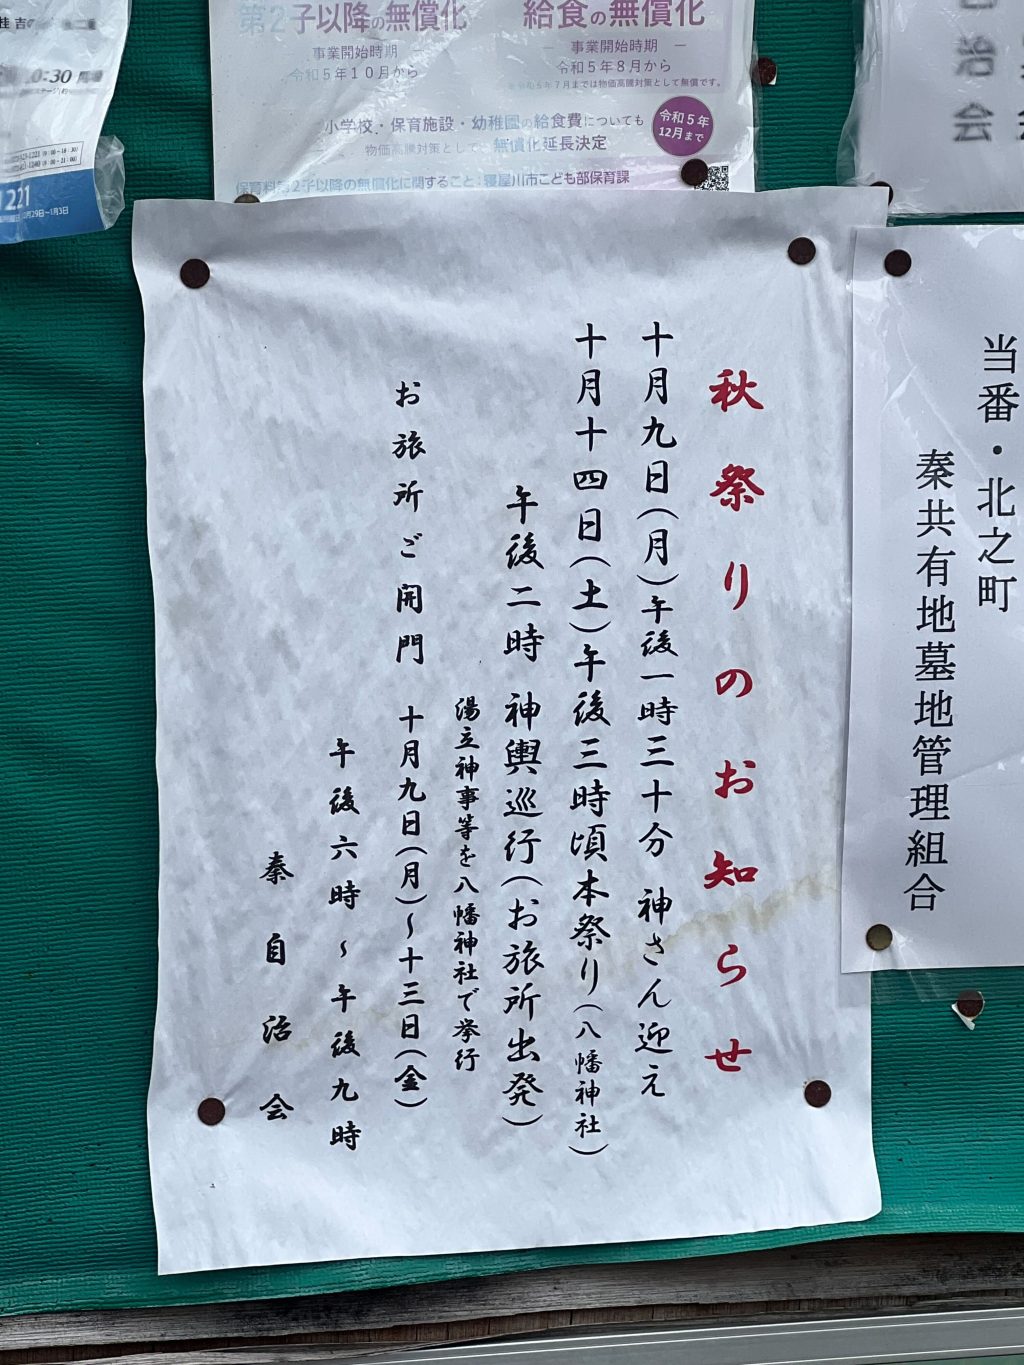 10:30
1221
第2子以降の無償化
事業開始時期
令和5年10月から
給食の無償化
事業開始時期
令和5年8月から
※令和5年7月までは物価高騰対策として無償です。
小学校・保育施設・幼稚園の給食費についても
物価高騰対策として、無償化延長決定
令和5年
12月まで
保育料第2子以降の無償化に関すること:寝屋川市こども部保育課
治会
秋祭りのお知らせ
十月九日(月)午後一時三十分 神さん迎え
十月十四日(土)午後三時頃本祭り(八幡神社)
午後二時 神輿巡行(お旅所出発)
湯立神事等を八幡神社で挙行
お旅所ご開門 十月九日(月)~十三日(金)
午後六時~午後九時
秦自治会
当番・北之町
秦共有地墓地管理組合